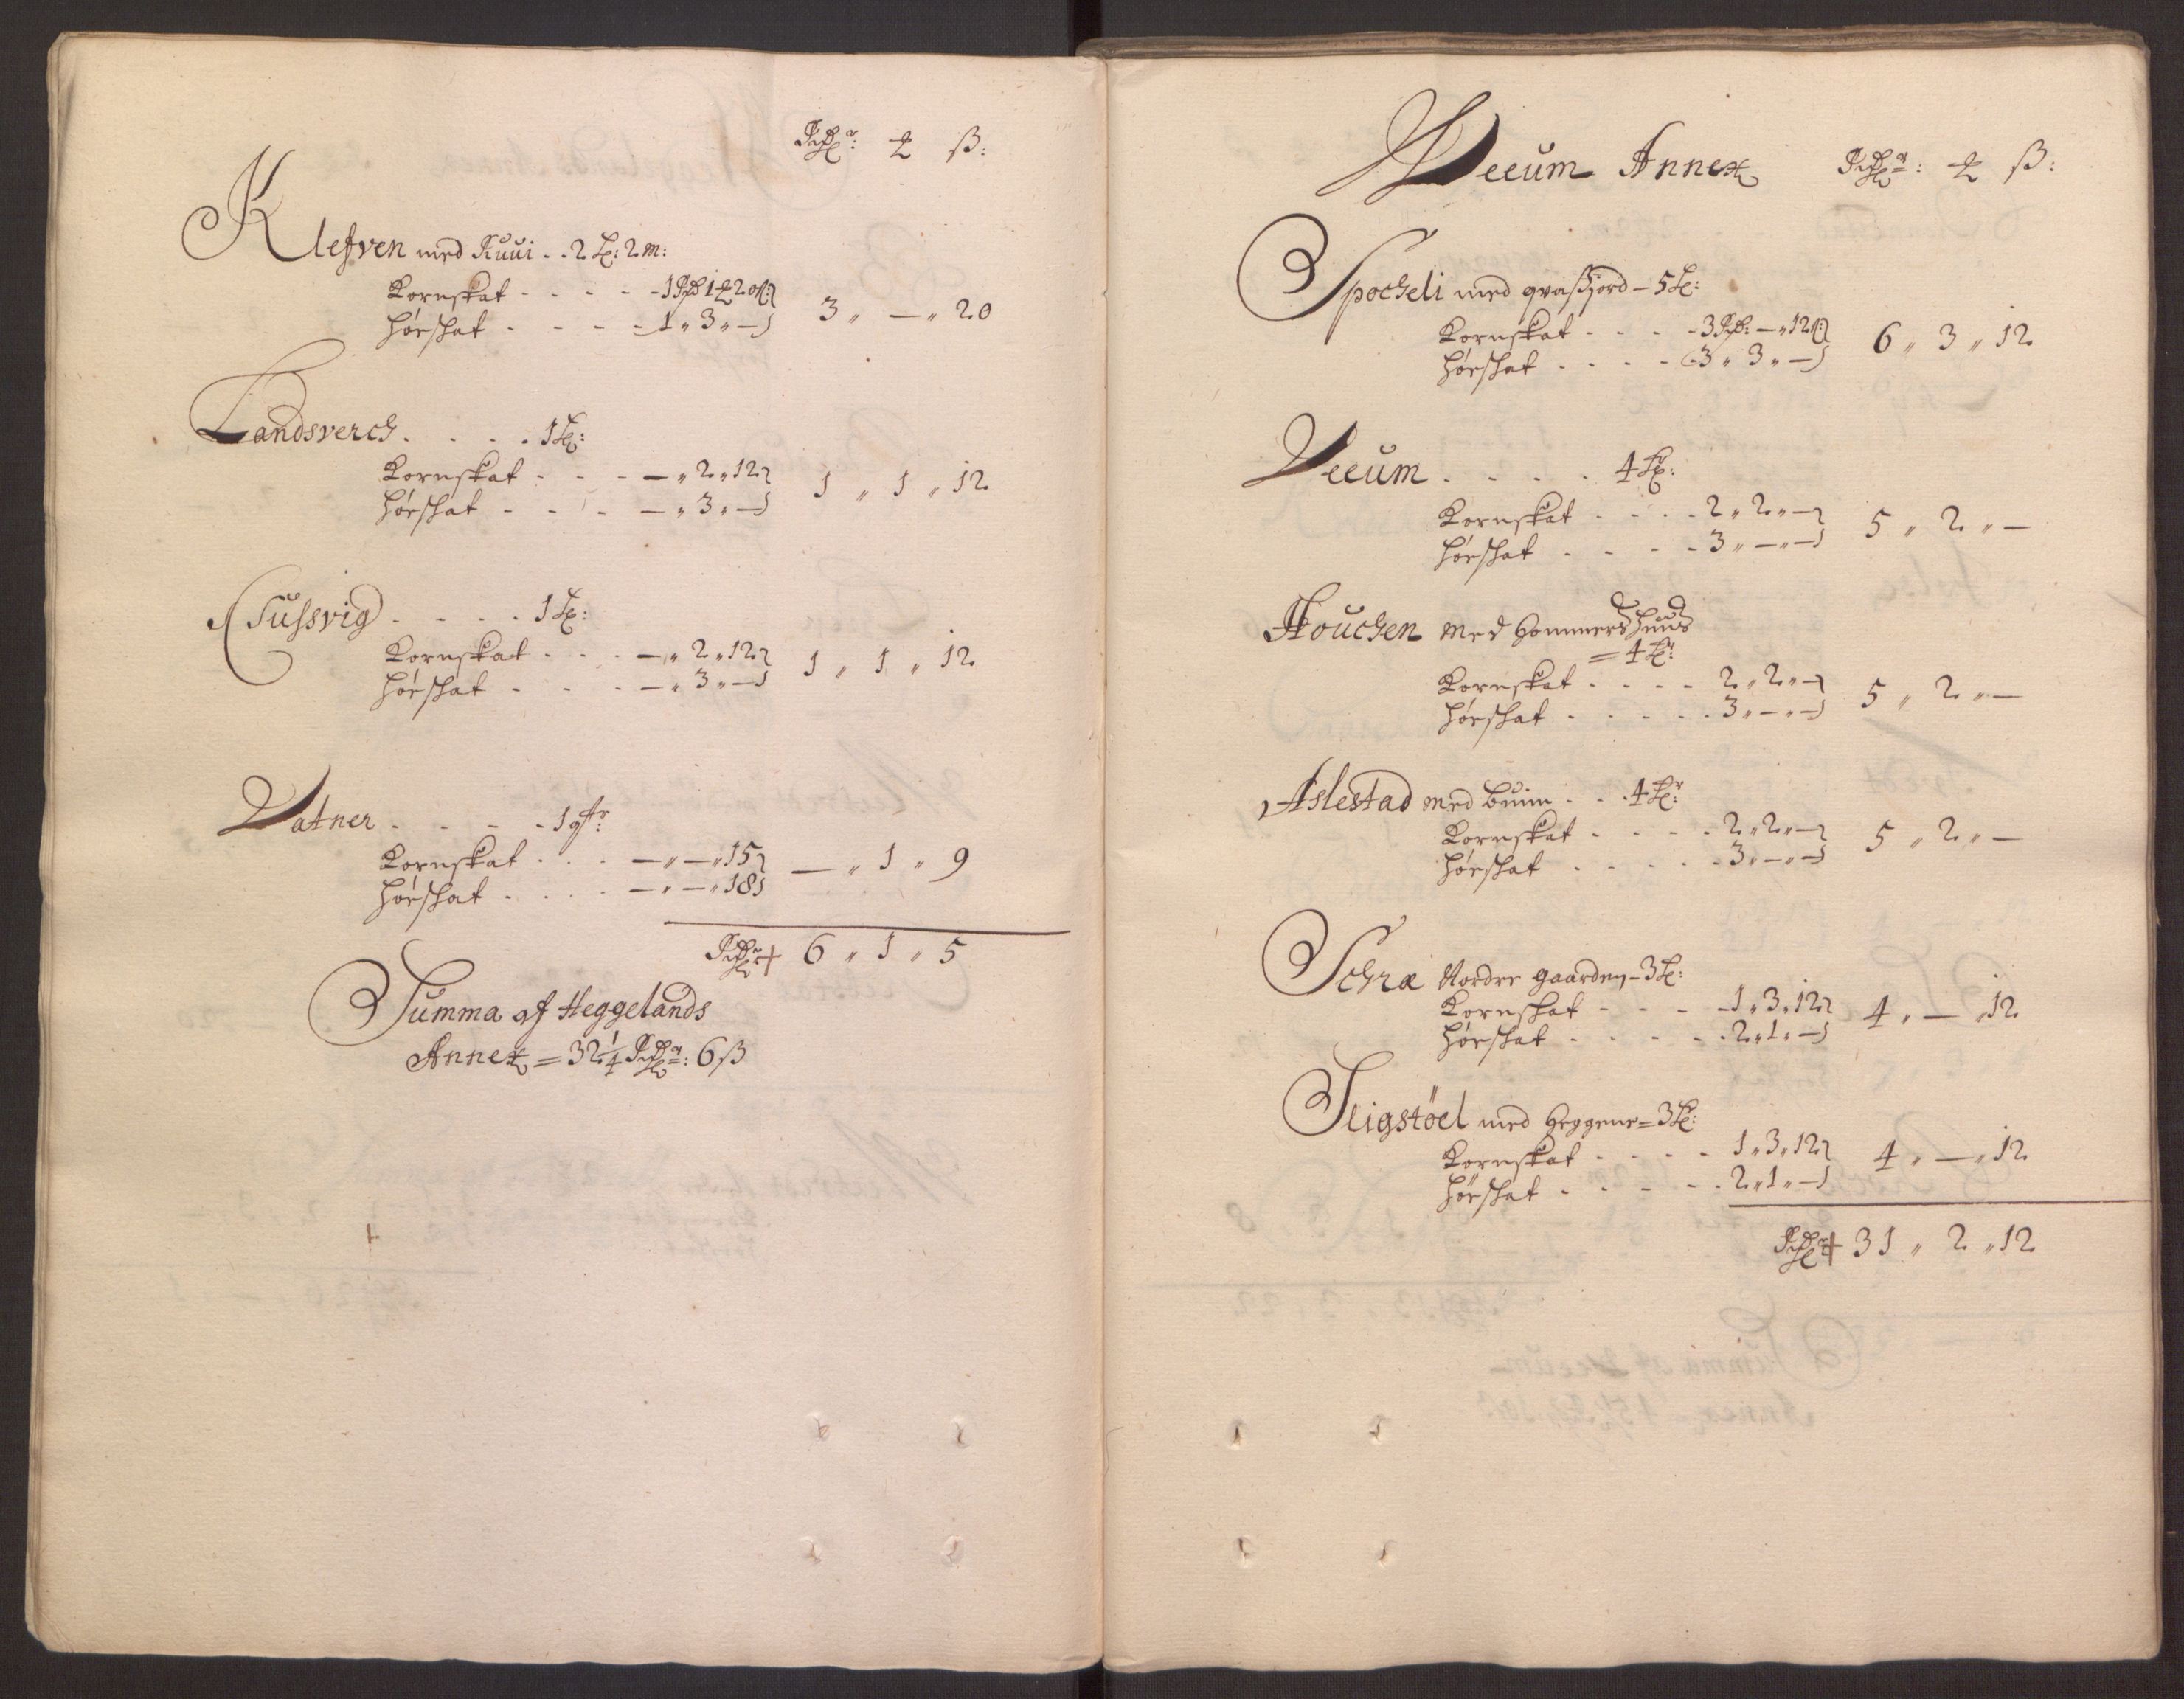 Rdr: ort ß:
Klefven med Ruui - - 2 Lp: 2 m:
Kornskat - - - - 1 Rd 1 ort 20 ß
Hørskat - - - - 1 " 3 " — 3 " — " 20
Landsverch . . . . 1 Lp:
Kornskat - - - — " 2 " 12
Hørskat - - - — " 3 " — 1 " 1 " 12
Sussvig . . . . 1 Lp:
Kornskat - - - — " 2 " 12
Hørskat - - - — " 3 " — 1 " 1 " 12
Vatner . . . . 1 
Kornskat . . . — " — " 15
Hørskat . . . . — " — " 18 — " 1 " 9
Rdr + 6 " 1 " 5
Summa af Heggelands
Annex = 32 1/4 Rdr: 6 ß
Veeum Annex Rdr: ort ß:
Spocheli med qvaßjord – 5 Lp:
Kornskat - - - - 3 Rd: — " 12 ß
Hørskat . . . . 3 " 3 " — 6 " 3 " 12
Veeum . . . . 4 Lpr:
Kornskat . . . . 2 " 2 " —
Hørskat . . . . 3 " — " — 5 " 2 " —
Houchen med Hommershuus
= 4 Lpr:
Kornskat . . . . 2 " 2 " —
Hørskat . . . . . 3 " — " — 5 " 2 " —
Aslestad med Buim . . . 4 Lpr:
Kornskat . . . . 2 " 2 " —
Hørskat . . . . . 3 " — " — 5 " 2 " —
Schræ Norder gaarden – 3 Lp:
Kornskat - - - - 1 " 3 " 12
Hørskat . . . . . 2 " 1 " — 4 " — " 12
Sligstöel med Heggene = 3 Lp:
Kornskat . . . . 1 " 3 " 12
Hörskat . . . . . 2 " 1 " — 4 " — " 12
Rdr + 31 " 2 " 12